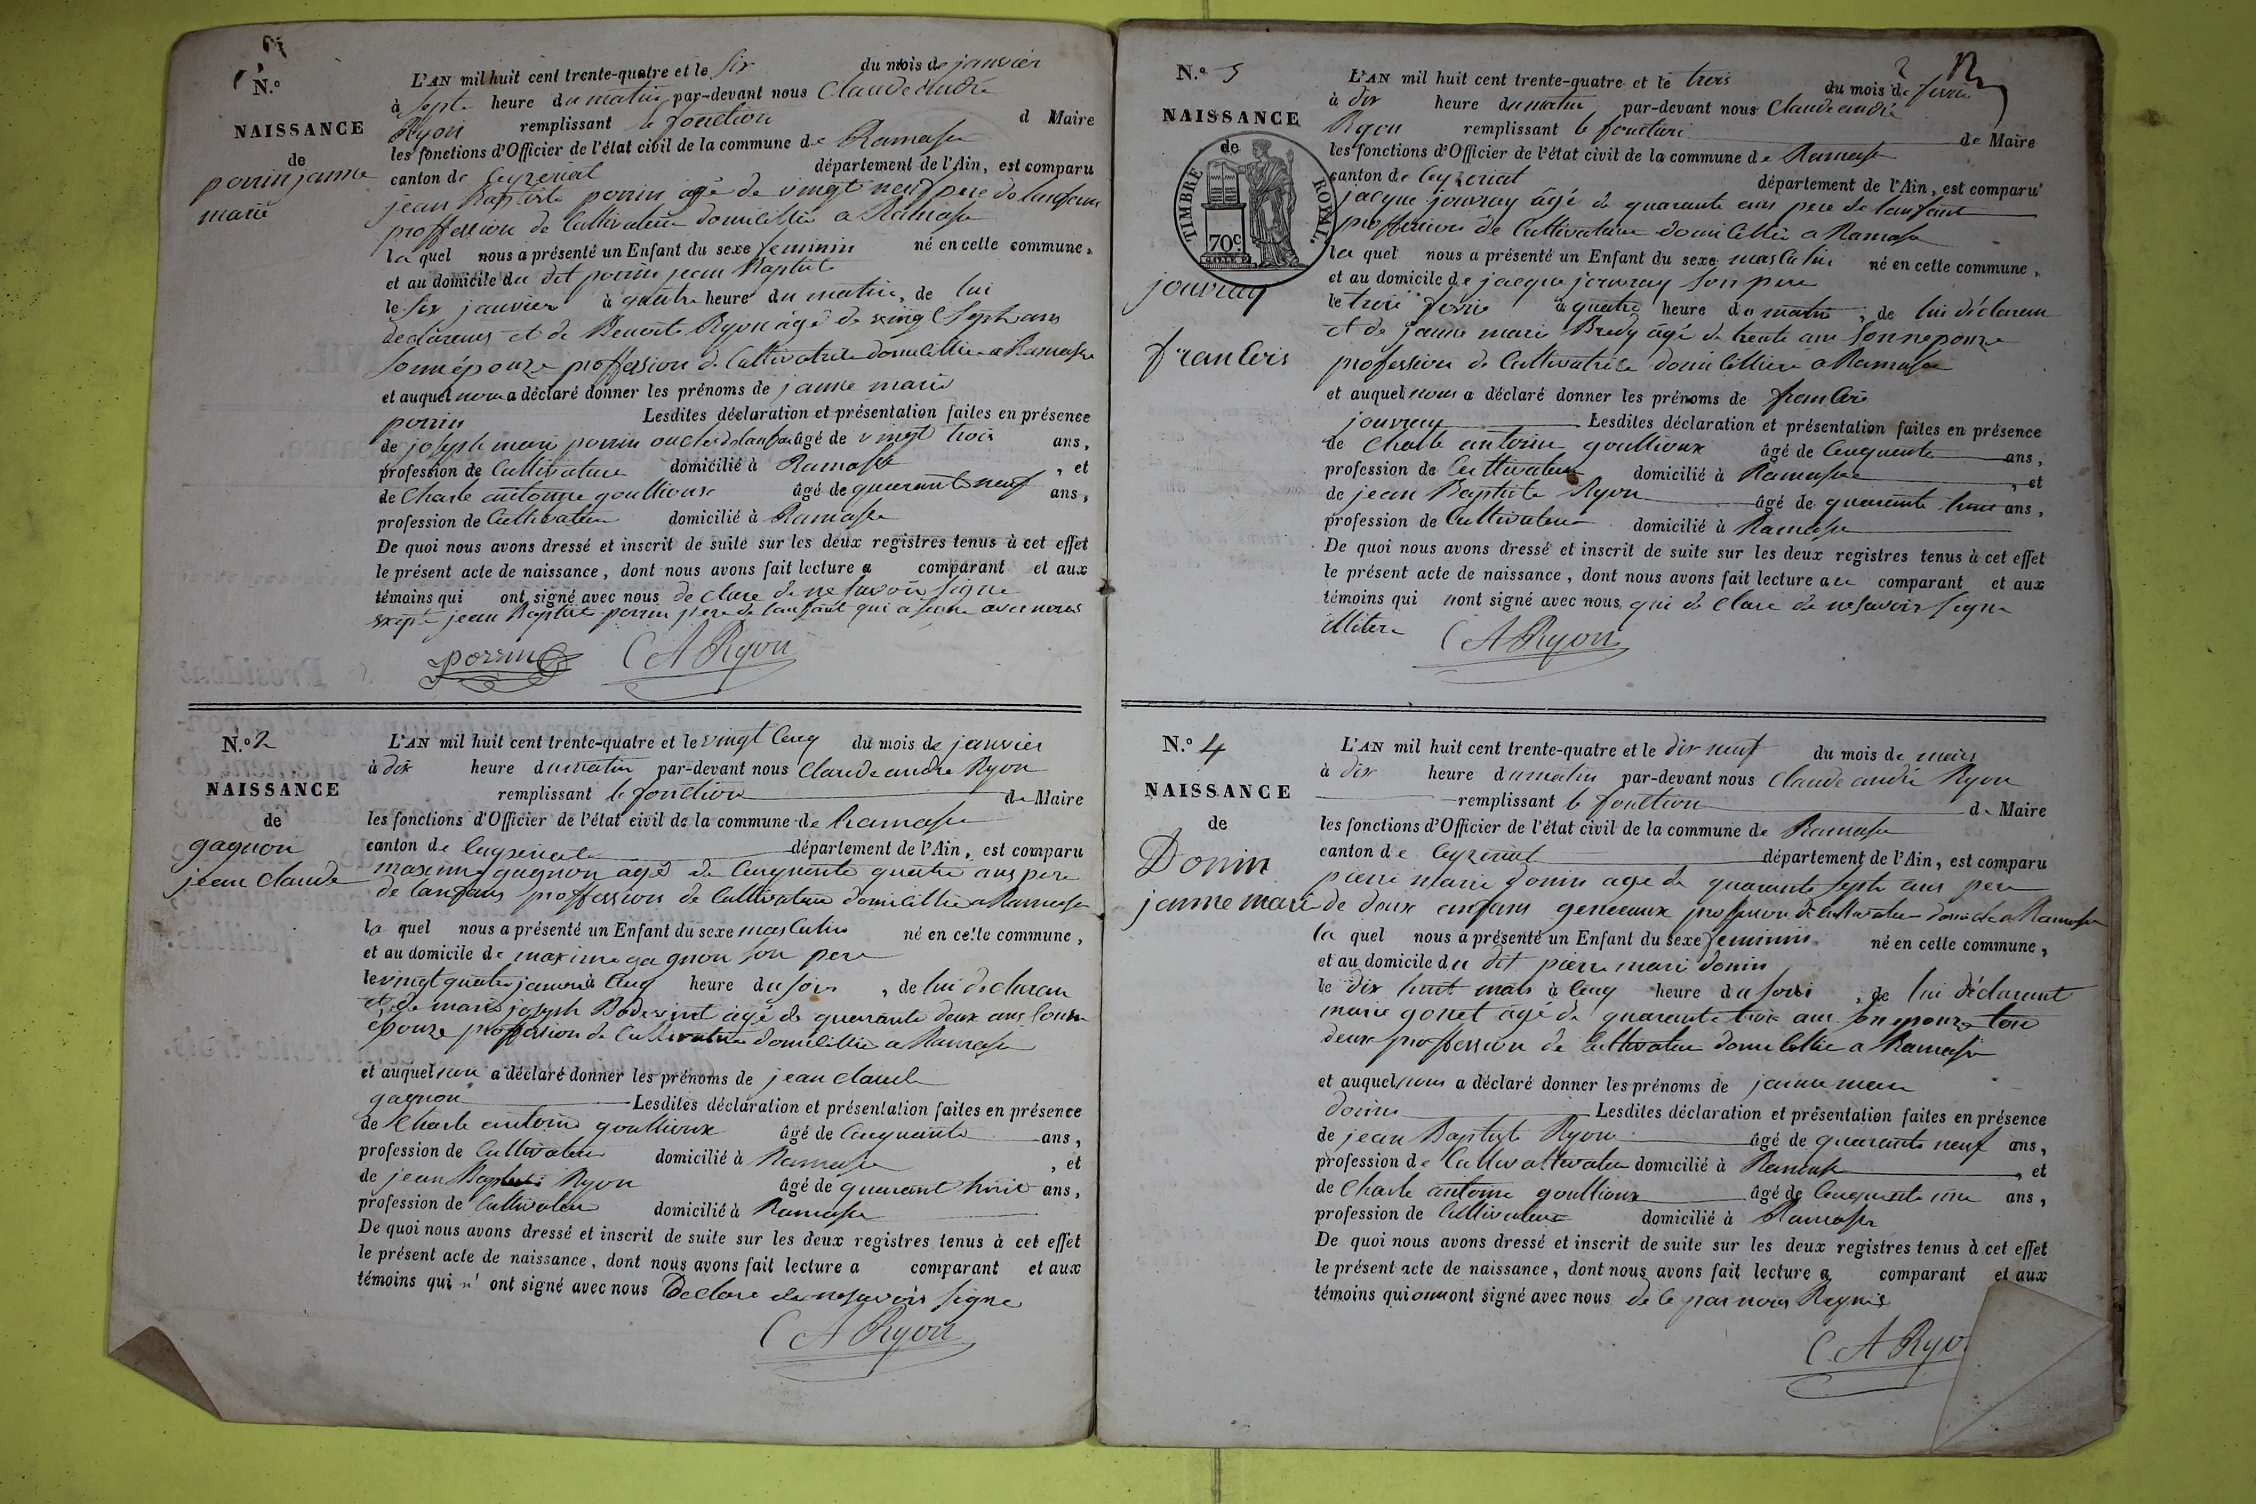 N.º
NAISSANCE
de
porrin janne
marie
L'AN mil huit cent trente-quatre et le six du mois de janvier
à septe heure du matin par-devant nous Claude andré
Ryon remplissant le fonction d Maire
les fonctions d'Officier de l'état civil de la commune de Ramasse
canton de Ceyzeriat département de l'Ain, est comparu
jean Baptiste porrin agé de vingt neuf pere de lanfant
proffession de Cultivateur domicillié a Ramasse
la quel nous a présenté un Enfant du sexe feminin né en cette commune,
et au domicile du dit porrin jean Baptiste
le six janvier à quatre heure du matin, de lui
declareur et de Benoite Ryon âgé de vingt Septe ans
Sonnépouze proffession de Cultivatrice domicillié a Ramasse
et auquel nous a déclaré donner les prénoms de janne marie
porrin Lesdites déclaration et présentation faites en présence
de joseph marie porrin oncle de lanfan âgé de vingt trois ans,
profession de Cultivateur domicilié à Ramasse, et
de Charle antoine goullioux âgé de quarante neuf ans,
profession de Cultivateur domicilié à Ramasse
De quoi nous avons dressé et inscrit de suite sur les deux registres tenus à cet effet
le présent acte de naissance, dont nous avons fait lecture a comparant et aux
témoins qui ont signé avec nous de clare de ne savoir signe
exepte jean Baptiste porrin pere de lanfant qui a signe avec nous
porrin C A Ryon
N.º 2
NAISSANCE
de
gagnon
jean claude
L'AN mil huit cent trente-quatre et le vingt Cinq du mois de janvier
à dix heure du matin par-devant nous Claude andre Ryon
remplissant le fonction de Maire
les fonctions d'Officier de l'état civil de la commune de Ramasse
canton de Ceyzeriat département de l'Ain, est comparu
maxime gagnon agé de Cinquente quatre ans pere
de lanfans proffession de Cultivateur domicillié a Ramasse
la quel nous a présenté un Enfant du sexe masculin né en cette commune,
et au domicile de maxime gagnon son pere
le vingt quatre janvié à Cinq heure du soir, de lui declaran
et de marie joseph Bodevint agé de quarante deux ans Sonn
epouze proffession de Cultivatrice domicillié a Ramasse
et auquel nous a déclaré donner les prénoms de jean claude
gagnon Lesdites déclaration et présentation faites en présence
de Charle antoine goullioux âgé de Cinquante ans,
profession de Cultivateur domicilié à Ramasse, et
de jean Baptiste Ryon âgé de quarant huit ans,
profession de Cultivateur domicilié à Ramasse
De quoi nous avons dressé et inscrit de suite sur les deux registres tenus à cet effet
le présent acte de naissance, dont nous avons fait lecture a comparant et aux
témoins qui n' ont signé avec nous Declare de ne savoir signe
C A Ryon
N.º 3
NAISSANCE
de
TIMBRE ROYAL.
70c.
jouvray
francois
2
L'AN mil huit cent trente-quatre et le trois du mois de fevrié
à dix heure du matin par-devant nous Claude andré
Ryon remplissant le fonction de Maire
les fonctions d'Officier de l'état civil de la commune de Ramasse
canton de Ceyzeriat département de l'Ain, est comparu
jacque jouvray âgé de quarante ans pere de lanfant
proffession de Cultivateur domicillié a Ramasse
la quel nous a présenté un Enfant du sexe masculin né en cette commune,
et au domicile de jacque jouvray son pere
le trois fevrié à quatre heure du matin, de lui déclareur
et de janne marie Bredy âgé de trente ans Sonnepouze
profession de Cultivatrice domicillieé a Ramasse
et auquel nous a déclaré donner les prénoms de francois
jouvray Lesdites déclaration et présentation faites en présence
de Charle antoine goullioux âgé de Cinquente ans,
profession de Cultivateur domicilié à Ramasse, et
de jean Baptiste Ryon âgé de quarante huit ans,
profession de Cultivateur domicilié à Ramasse
De quoi nous avons dressé et inscrit de suite sur les deux registres tenus à cet effet
le présent acte de naissance, dont nous avons fait lecture au comparant et aux
témoins qui nont signé avec nous, qui de clare de ne savoir signe
illitere C A Ryon
N.º 4
NAISSANCE
de
Donin
janne marie
L'AN mil huit cent trente-quatre et le dix neuf du mois de mars
à dix heure du matin par-devant nous Claude andré Ryon
remplissant le fonction de Maire
les fonctions d'Officier de l'état civil de la commune de Ramasse
canton de Ceyzeriat département de l'Ain, est comparu
pierre marie donin agé de quarante septe ans pere
de deux enfans gemeaux proffession de Cultivateur domicilié a Ramasse
la quel nous a présenté un Enfant du sexe feminin né en cette commune,
et au domicile du dit pierre marie donin
le dix huit mars à Cinq heure du soir, de lui déclarent
marie gonet âgé de quarante trois ans son epouze tous
deux proffession de Cultivateur domicillié a Ramasse
et auquel nous a déclaré donner les prénoms de janne marie
donin Lesdites déclaration et présentation faites en présence
de jean Baptiste Ryon âgé de quarante neuf ans,
profession de Cultivattivateur domicilié à Ramasse, et
de Charle antoine goullioux âgé de Cinquente une ans,
profession de Cultivateur domicilié à Ramasse
De quoi nous avons dressé et inscrit de suite sur les deux registres tenus à cet effet
le présent acte de naissance, dont nous avons fait lecture a comparant et aux
témoins qui ont signé avec nous de ce par nous Requis
C. A Ryo